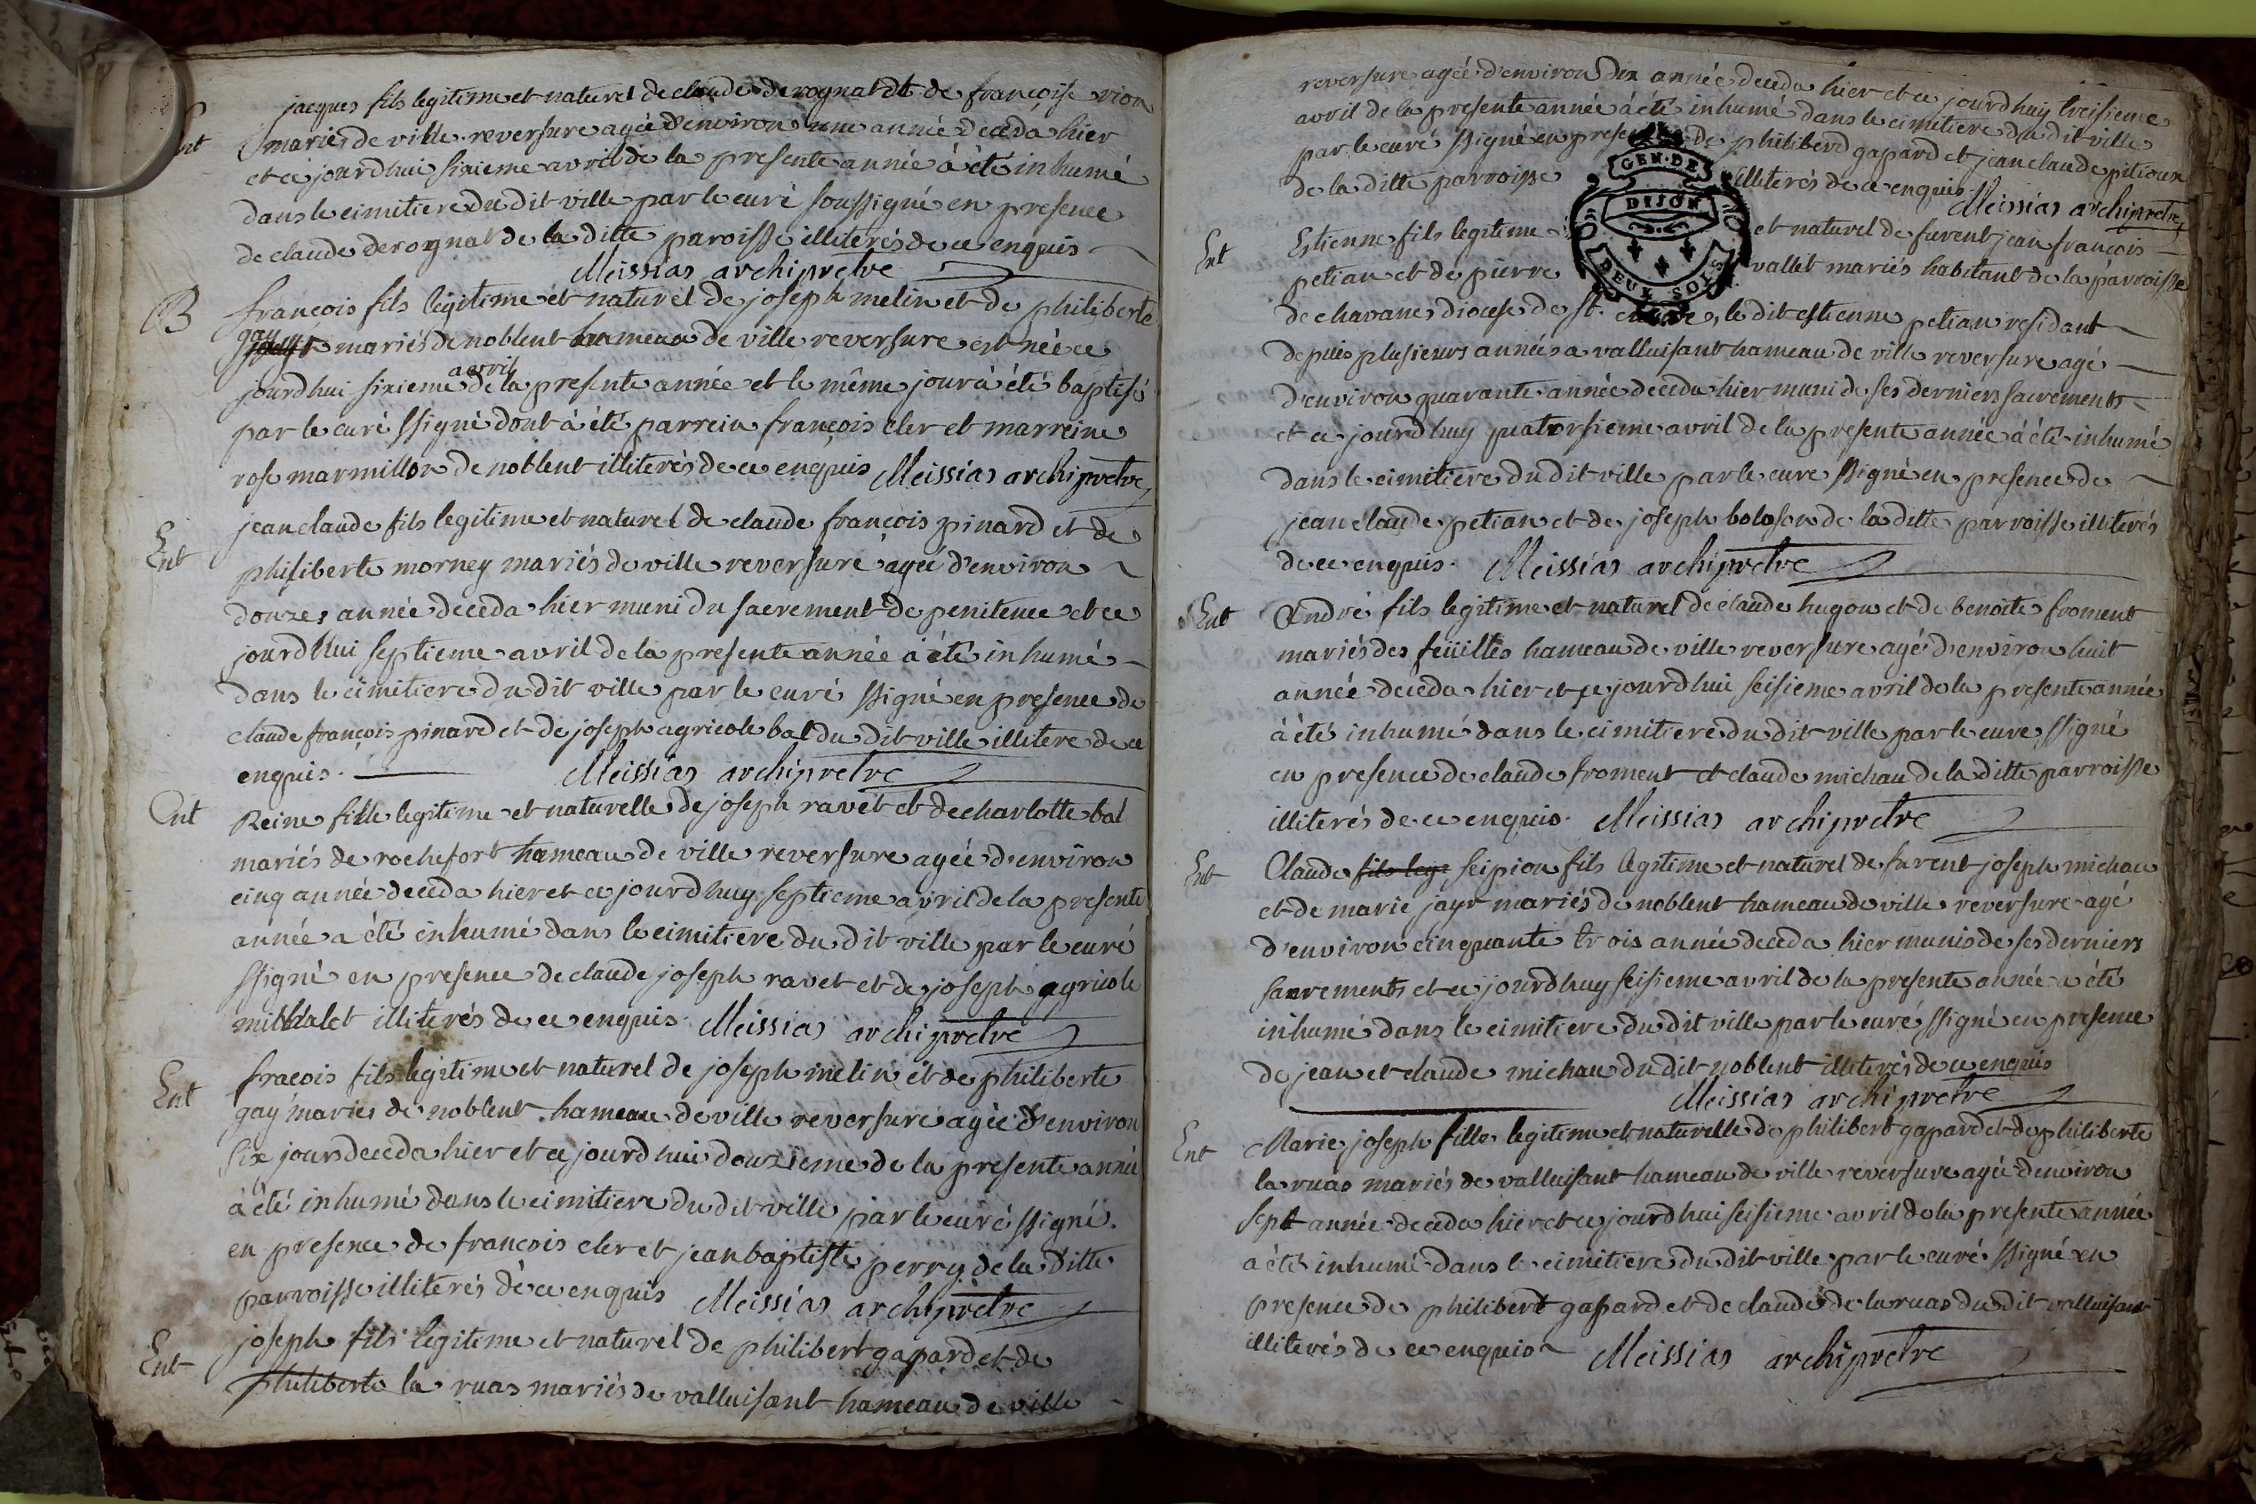 Ent
jacques fils legitime et naturel de claude derognat et de françoise vion
mariés de ville reversure agée d'environ une année deceda hier
et ce jourdhui sixieme avril de la presente année à été inhumé
dans le cimitiere du dit ville par le curé soussigné en presence
de claude derognat de la ditte paroisse illiterés de ce enquis
Meissias archiprêtre
B
françois fils legitime et naturel de joseph melin et de philiberte
gay mariés de noblent hameau de ville reversure est née ce
jourdhui sixieme avril de la presente année et le même jour à été baptisé
par le curé ssigné dont à été parrein françois cler et marreine
rose marmillon de noblent illiterés de ce enquis Meissias archiprêtre
Ent
jean claude fils legitime et naturel de claude françois pinard et de
philiberte morney mariés de ville reversure agée d'environ
douzes année deceda hier muni du sacrement de penitence et ce
jourdhui septieme avril de la presente année à été inhumé
dans le cimitiere du dit ville par le curé ssigné en presence de
claude françois pinard et de joseph agricole bal du dit ville illitere de ce
enquis. Meissias archiprêtre
Ent
Reine fille legitime et naturelle de joseph ravet et de charlotte bal
mariés de rochefort hameau de ville reversure agée d'environ
cinq année deceda hier et ce jourdhuy septieme avril de la presente
année a été inhumé dans le cimitiere du dit ville par le curé
ssigné en presence de claude joseph ravet et de joseph agricole
mithalet illiterés de ce enquis. Meissias archiprêtre
Ent
fracois fils legitime et naturel de joseph melin et de philiberte
gay mariés de noblent hameau de ville reversure agée d'environ
six jour deceda hier et ce jourdhui douzieme de la presente année
à été inhumé dans le cimitiere du dit ville par le curé ssigné
en presence de francois cler et jean baptiste perry de la ditte
parroisse illiterés de ce enquis Meissias archiprêtre
Ent
joseph fils legitime et naturel de philibert gapard et de
philiberte la ruas mariés de valluisant hameau de ville
reversure agée d'environ dix année deceda hier et ce jourdhuy treisieme
avril de la presente année à été inhumé dans le cimitiere du dit ville
par le curé ssigné en presence de philiberd gapard et jean claude pitioux
de la ditte parroisse illiterés de ce enquis.
Meissias archiprêtre
GEN. DE
DIJON
DEUX SOLS
Ent
Estienne fils legitime et naturel de furent jean françois
petian et de pierre vallet mariés habitant de la parroisse
de chavanes diocese de st. claude, le dit estienne petian residant
depuis plusieurs années a valluisant hameau de ville reversure agé
d'environ quarante année deceda hier muni de ses derniers sacrements
et ce jourdhuy quatorsieme avril de la presente année à été inhumé
dans le cimitiere du dit ville par le cure ssigné en presence de
jean claude petian et de joseph boloson de la ditte parroisse illiterés
de ce enquis. Meissias archiprêtre
Ent
André fils legitime et naturel de claude hugon et de benoite froment
mariés des feüilles hameau de ville reversure agé d'environ huit
année deceda hier et ce jourdhui seisieme avril de la presente année
à été inhumé dans le cimitiere du dit ville par le cure ssigné
en presence de claude froment et claude michau de la ditte parroisse
illiterés de ce enquis. Meissias archiprêtre
Ent
Claude fils legi scipion fils legitime et naturel de furent joseph michau
et de marie jayr mariés de noblent hameau de ville reversure agé
d'environ cinquante trois année deceda hier munis de ses derniers
sacrements et ce jourdhuy seisieme avril de la presente année a été
inhumé dans le cimitiere du dit ville par le curé ssigné en presence
de jean et claude michau du dit noblent illiterés de ce enquis
Meissias archiprêtre
Ent
Marie joseph fille legitime et naturelle de philibert gapard et de philiberte
la ruas mariés de valluisant hameau de ville reversure agée d'environ
sept année deceda hier et ce jourdhui seisieme avril de la presente année
a été inhumé dans le cimitiere du dit ville par le curé ssigné en
presence de philibert gapard et de claude de la ruas du dit valluisant
illiterés de ce enquis Meissias archiprêtre